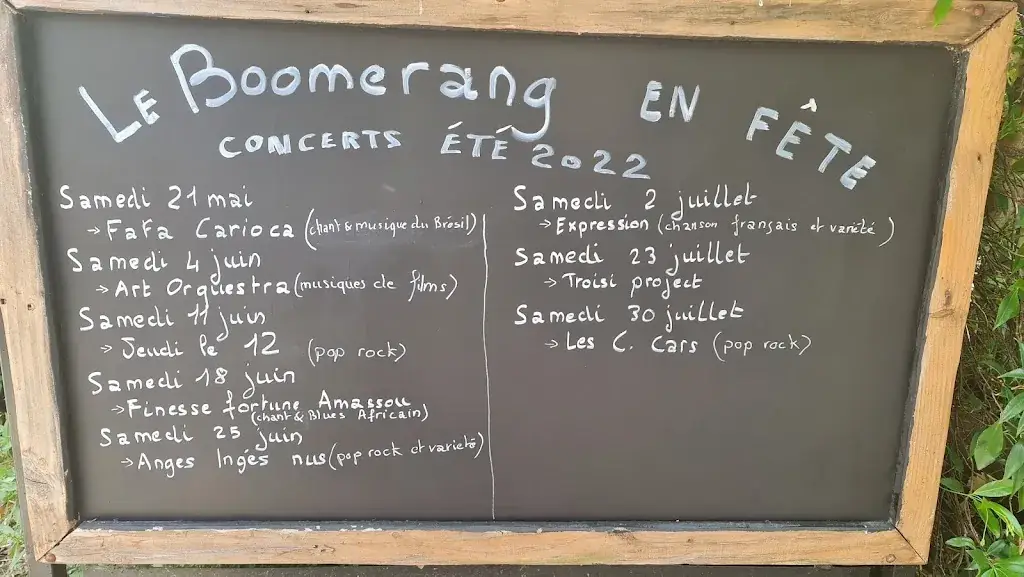 Le Boomerang EN FÊTE
CONCERTS ÉTÉ 2022
Samedi 21 mai
→ Fafa Carioca (chant & musique du Brésil)
Samedi 4 juin
→ Art Orquestra (musiques de films)
Samedi 11 juin
→ Jeudi le 12 (pop rock)
Samedi 18 juin
→ Finesse fortune Amassou
(chant & Blues Africain)
Samedi 25 juin
→ Anges Ingés nus (pop rock et varieté)
Samedi 2 juillet
→ Expression (chanson français et variété)
Samedi 23 juillet
→ Troisi project
Samedi 30 juillet
→ Les C. Cars (pop rock)